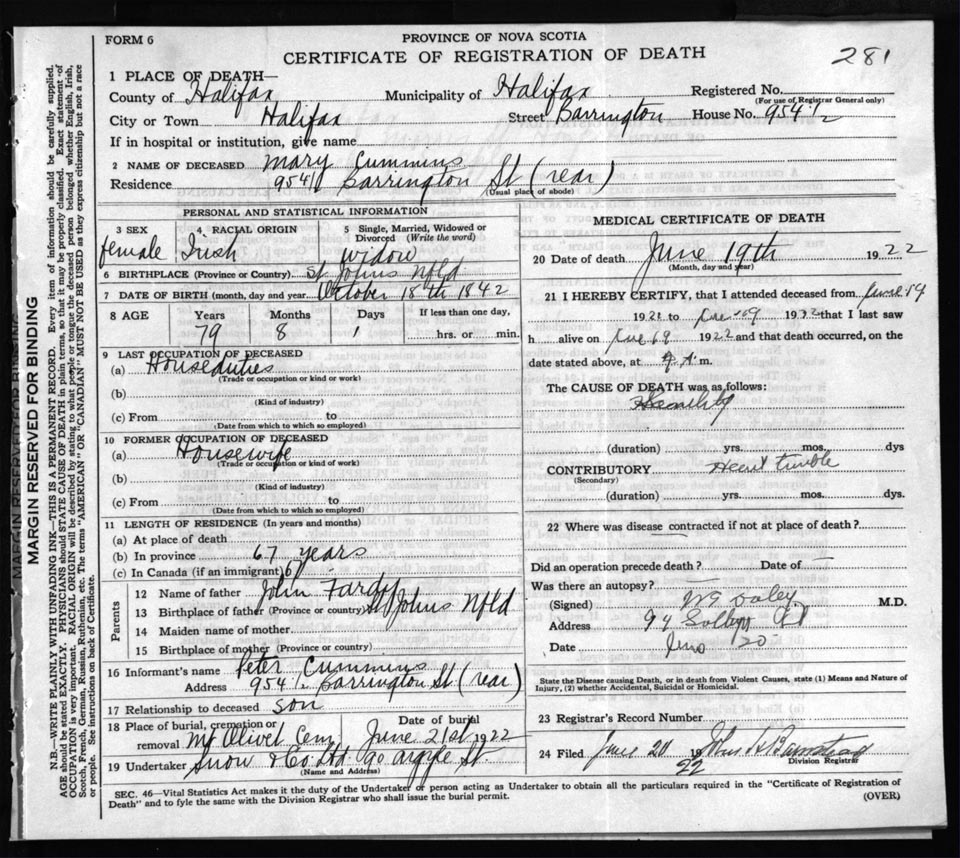 FORM 6
PROVINCE OF NOVA SCOTIA
CERTIFICATE OF REGISTRATION OF DEATH
281
1 PLACE OF DEATH—
County of Halifax Municipality of Halifax Registered No.
(For use of Registrar General only)
City or Town Halifax Street Barrington House No. 954 1/2
If in hospital or institution, give name
2 NAME OF DECEASED Mary Cummins
Residence 954 1/2 Barrington St (rear)
(Usual place of abode)
PERSONAL AND STATISTICAL INFORMATION
3 SEX 4. RACIAL ORIGIN 5 Single, Married, Widowed or Divorced (Write the word)
female Irish widow
6 BIRTHPLACE (Province or Country) St Johns Nfld
7 DATE OF BIRTH (month, day and year) October 18th 1842
8 AGE Years Months Days If less than one day,
79 8 1 hrs. or min.
9 LAST OCCUPATION OF DECEASED
(a) House duties
(Trade or occupation or kind or work)
(b)
(Kind of industry)
(c) From to
(Date from which to which so employed)
10 FORMER OCCUPATION OF DECEASED
(a) Housewife
(Trade or occupation or kind of work)
(b)
(Kind of industry)
(c) From to
(Date from which to which so employed)
11 LENGTH OF RESIDENCE (In years and months)
(a) At place of death
(b) In province 67 years
(c) In Canada (if an immigrant) 67
Parents
12 Name of father John Fardy
13 Birthplace of father (Province or country) St Johns Nfld
14 Maiden name of mother
15 Birthplace of mother (Province or country)
16 Informant's name Peter Cummins
Address 954 1/2 Barrington St (rear)
17 Relationship to deceased son
18 Place of burial, cremation or removal Mt Olivet Cem Date of burial June 21st 1922
19 Undertaker Snow & Co. Ltd. 90 Argyle St.
(Name and Address)
MEDICAL CERTIFICATE OF DEATH
20 Date of death June 19th 1922
(Month, day and year)
21 I HEREBY CERTIFY, that I attended deceased from June 19
1922 to June 19 1922 that I last saw
h alive on June 19 1922 and that death occurred, on
date stated above, at m.
The CAUSE OF DEATH was as follows:
Senility
(duration) yrs. mos. dys
CONTRIBUTORY Heart trouble
(Secondary)
(duration) yrs. mos. dys.
22 Where was disease contracted if not at place of death?
Did an operation precede death? Date of
Was there an autopsy?
(Signed) M.D.
Address
Date June 20
State the Disease causing Death, or in death from Violent Causes, state (1) Means and Nature of
Injury, (2) whether Accidental, Suicidal or Homicidal.
23 Registrar's Record Number
24 Filed June 20 1922
Division Registrar
SEC. 46—Vital Statistics Act makes it the duty of the Undertaker or person acting as Undertaker to obtain all the particulars required in the "Certificate of Registration of
Death" and to fyle the same with the Division Registrar who shall issue the burial permit. (OVER)
MARGIN RESERVED FOR BINDING
N.B.—WRITE PLAINLY WITH UNFADING INK—THIS IS A PERMANENT RECORD. Every item of information should be carefully supplied.
AGE should be stated EXACTLY. PHYSICIANS should STATE CAUSE OF DEATH in plain terms, so that it may be properly classified. Exact statement of
OCCUPATION is very important. RACIAL ORIGIN will be described by stating to what people or tongue the deceased person belonged whether English, Irish,
Scotch, French, German, Russian, Ruthenian, etc. The terms "AMERICAN" OR "CANADIAN" MUST NOT BE USED as they express citizenship but not a race
or people. See instructions on back of Certificate.